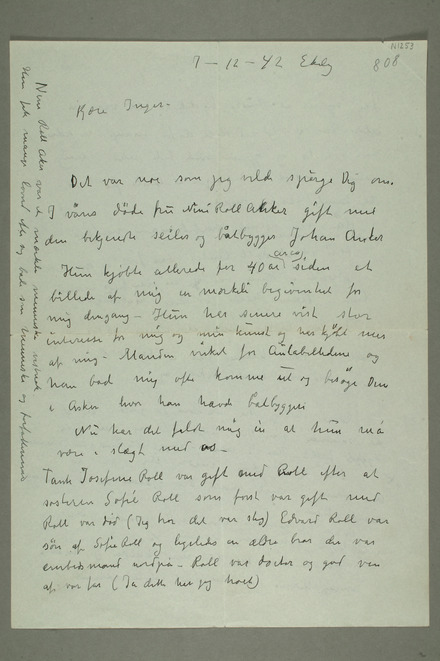 N1253
808
7 – 12 – 42 Ekely
Kære Inger –
Det var noe som jeg vilde spørge Dig om.
I våres døde fru Nini Roll Anker gift med
den bekjendte seiler og båtbygger Johan Anker
Hun kjøbte allerede for 40 år siden et
circa
billede af mig en mærkeli begivenhet for
mig dengang – Hun har senere vist stor
interesse for mig og min kunst og har kjøbt mer
af mig – Manden virket for Aulabillederne og
han bad mig ofte komme ut og besøge Dem
i Asker hvor han havde båtbyggeri
Nu har det faldt mig in at hun må
være i slægt med os –
Tante Josefine Roll var gift med Roll efter at
søsteren Sofie Roll som først var gift med
Roll var død (Jeg tror det var slig) Edvard Roll var
søn af Sofie Roll og ligeledes en ældre bror der var
embedsmand nordpå – Roll var doctor og god ven
af vor far (Ja dette har jeg hørt)
Nini Roll Anker var et mærkeli menneske
Hun fik mange lovord efter sig både som menneske og forfatterinde